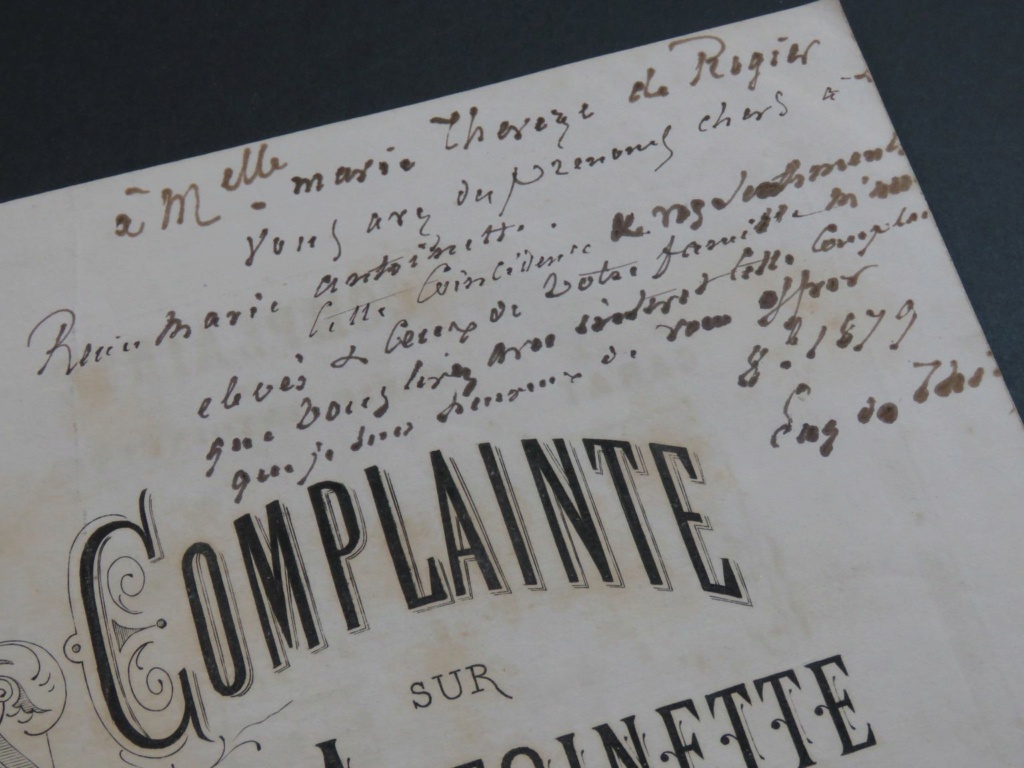 à Melle. marie Thereze de Rogier
Vous avez des prenoms chers à
Reine marie antoinette.
Cette Coincidence de vos Sentiments
elevés & Ceux de Votre famille
que Vous lirez avec interet Cette Compla
que je suis heureux de vous offrir
8. 1879
Eug de
COMPLAINTE
SUR
TOINETTE